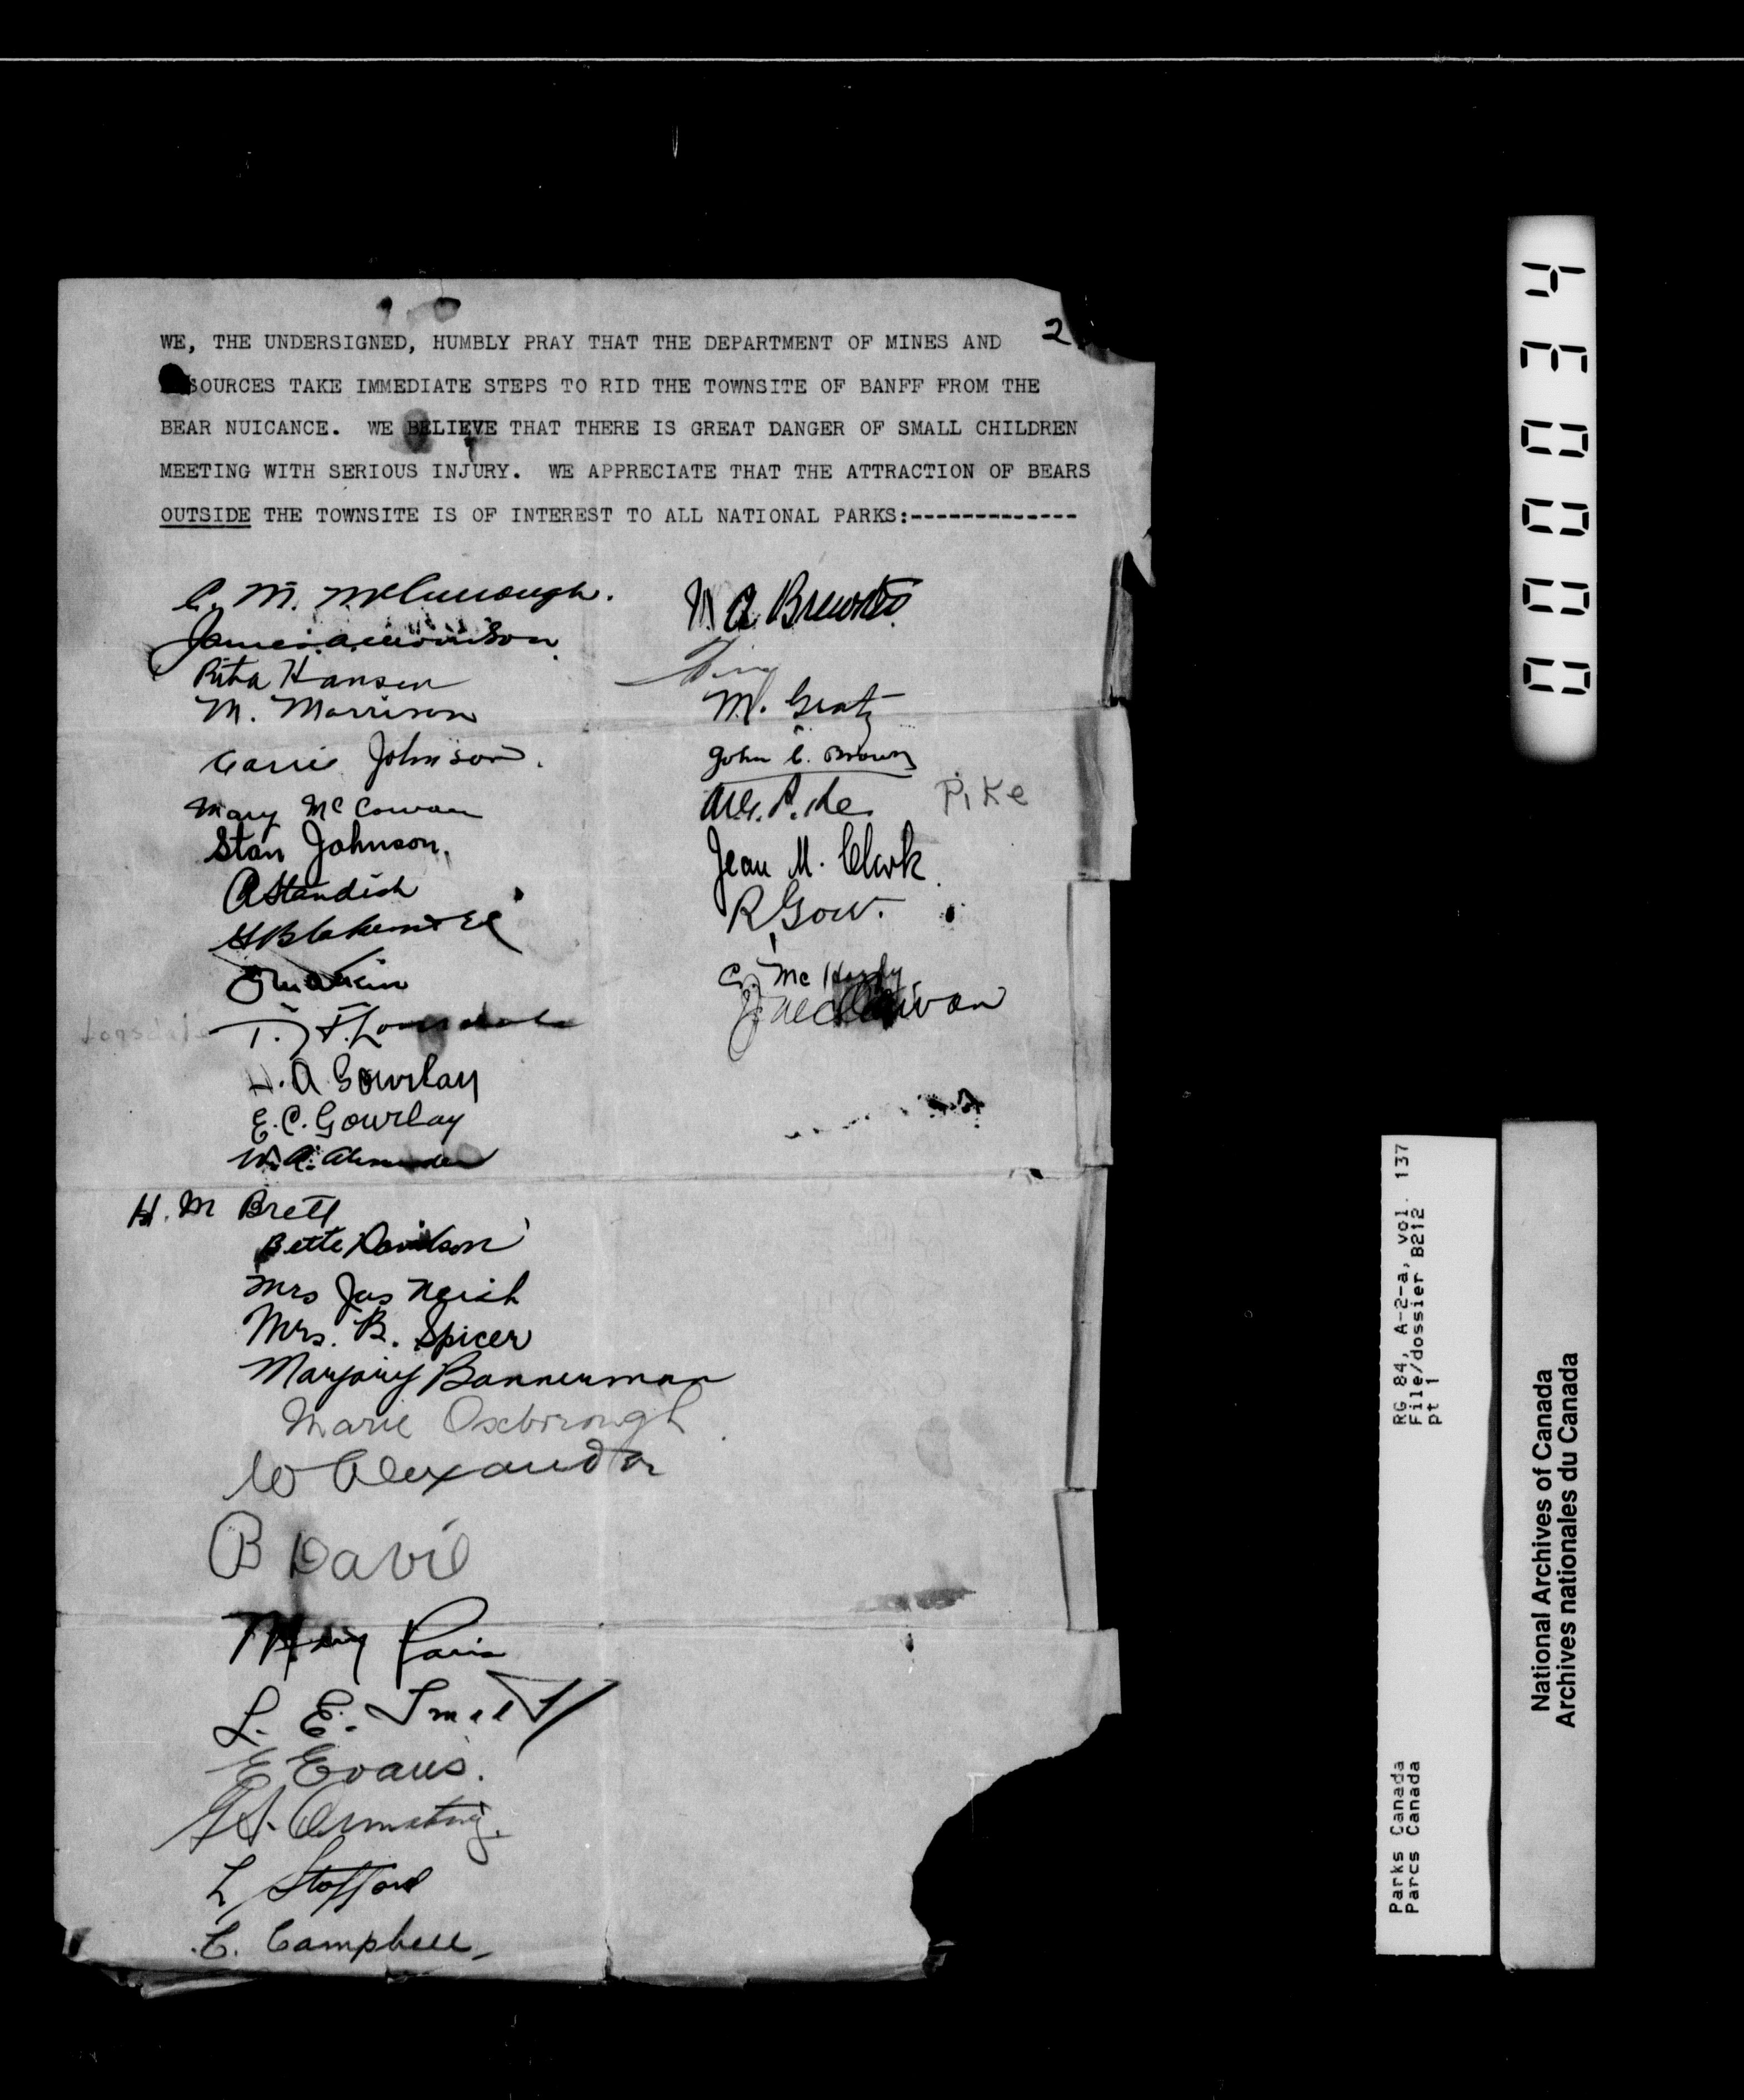 2
WE, THE UNDERSIGNED, HUMBLY PRAY THAT THE DEPARTMENT OF MINES AND
SOURCES TAKE IMMEDIATE STEPS TO RID THE TOWNSITE OF BANFF FROM THE
BEAR NUICANCE. WE BELIEVE THAT THERE IS GREAT DANGER OF SMALL CHILDREN
MEETING WITH SERIOUS INJURY. WE APPRECIATE THAT THE ATTRACTION OF BEARS
OUTSIDE THE TOWNSITE IS OF INTEREST TO ALL NATIONAL PARKS:-------------
C. M.
James
Rita Hansen
M. Morrison
Carrie Johnson.
Mary McCowan
Stan Johnson.
A Standish
Lonsdale T. J. F. Lonsdale
H. A Gourlay
E. C. Gourlay
W. A. Alexander
H. M Brett
Bette Davidson
Mrs Jas Neish
Mrs. B. Spicer
Marjory Bannerman
Marie Oxborough
W Alexander
B David
Mary
L. E.
E Evans.
Armstrong.
L Stafford
C. Campbell
A Brewster.
M.
John C. Brown
Pike
Jean M. Clark.
R Gow.
C. McHardy
000034
RG 84, A-2-a, vol. 137
File/dossier B212
pt 1
Parks Canada
Parcs Canada
National Archives of Canada
Archives nationales du Canada